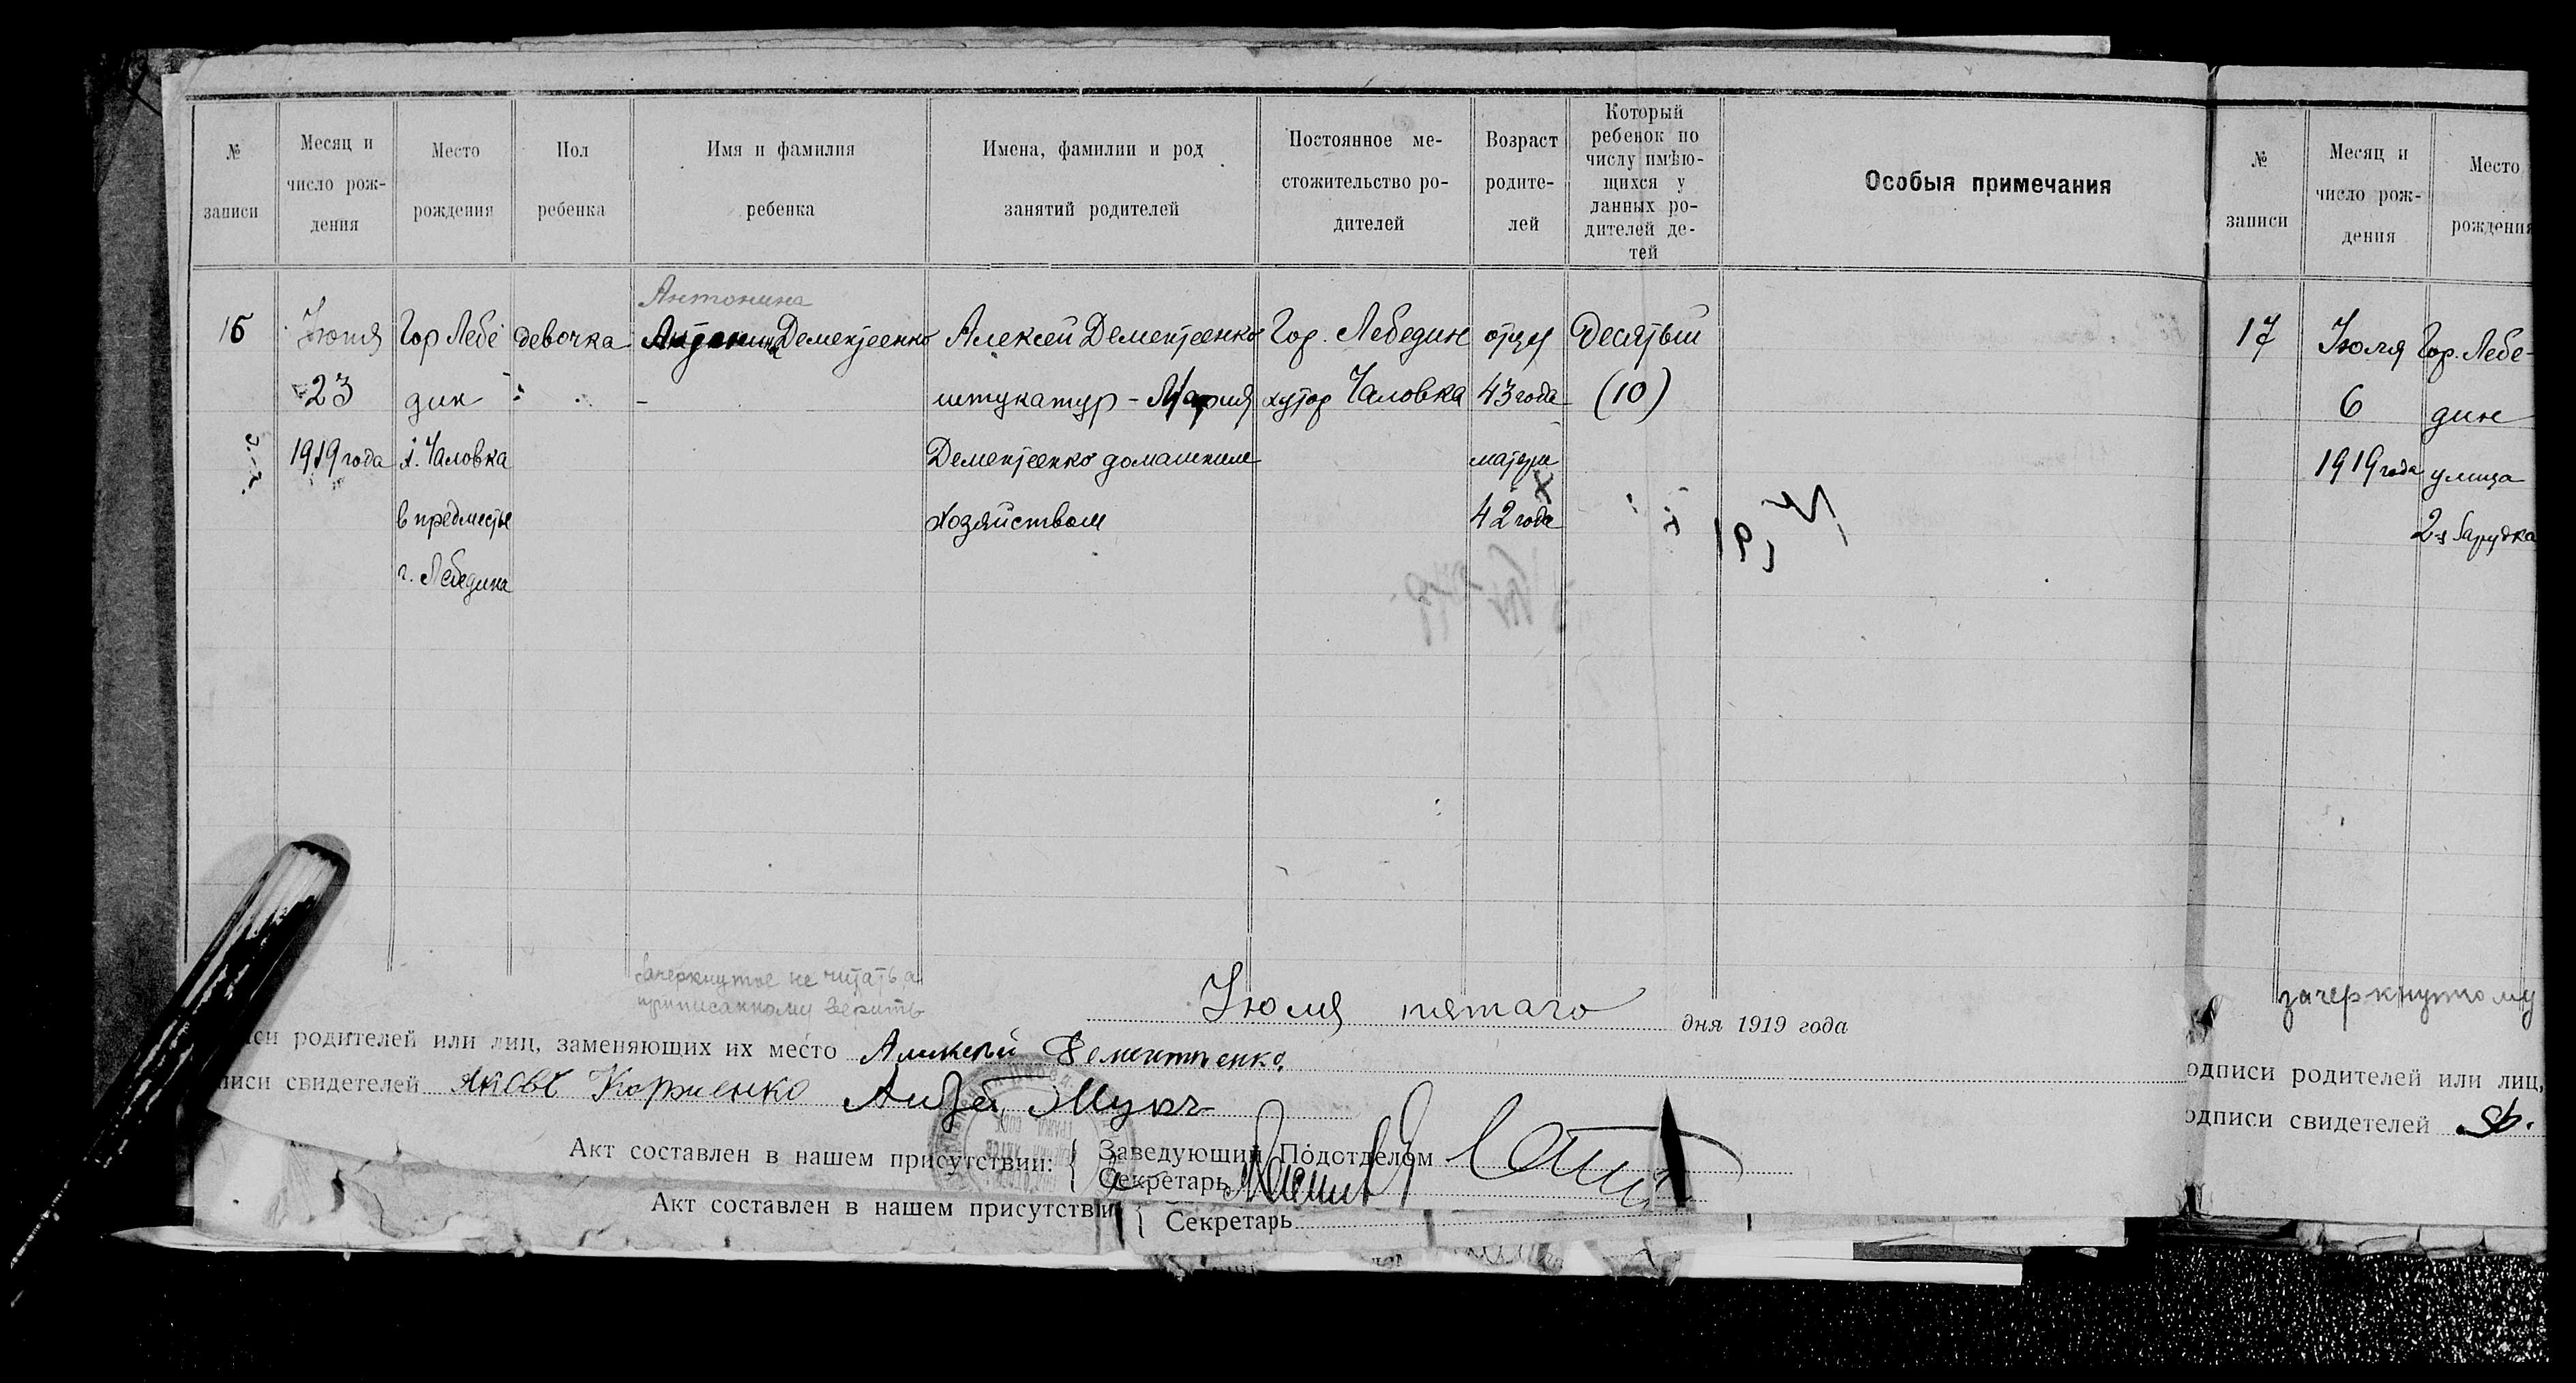 № записи
Месяц и число рож-дения
Место рождения
Пол ребенка
Имя и фамилия ребенка
Имена, фамилии и род занятий родителей
Постоянное ме-стожительство ро-дителей
Возраст родите-лей
Который ребенок по числу имѣю-щихся у данных ро-дителей де-тей
Особыя примечания
16
Июня
23
1919 года
Гор Лебе
дин
х. Чаловка
в предместье
г. Лебедина
девочка
Антонина
Антонина Дементеенко
Алексей Дементеенко
штукатур - Мария
Дементеенко домашним
хозяйством
Гор. Лебедин
хутор Чаловка
отцу
43 года
матери
42 года
Десятый
(10)
Зачеркнутое не читать а
приписанному верить
Июля пятаго дня 1919 года
си родителей или лиц, заменяющих их место Алексей Дементиенко
писи свидетелей Яковъ Корниенко Андрей
Акт составлен в нашем присутствии: { Заведующий Подотделом
Секретарь
Акт составлен в нашем присутстви { Секретарь
№ записи
Месяц и число рож-дения
Место рождения
17
Июля
6
1919 года
Гор. Лебе-
дин
улица
зачеркнутому
одписи родителей или лиц,
одписи свидетелей